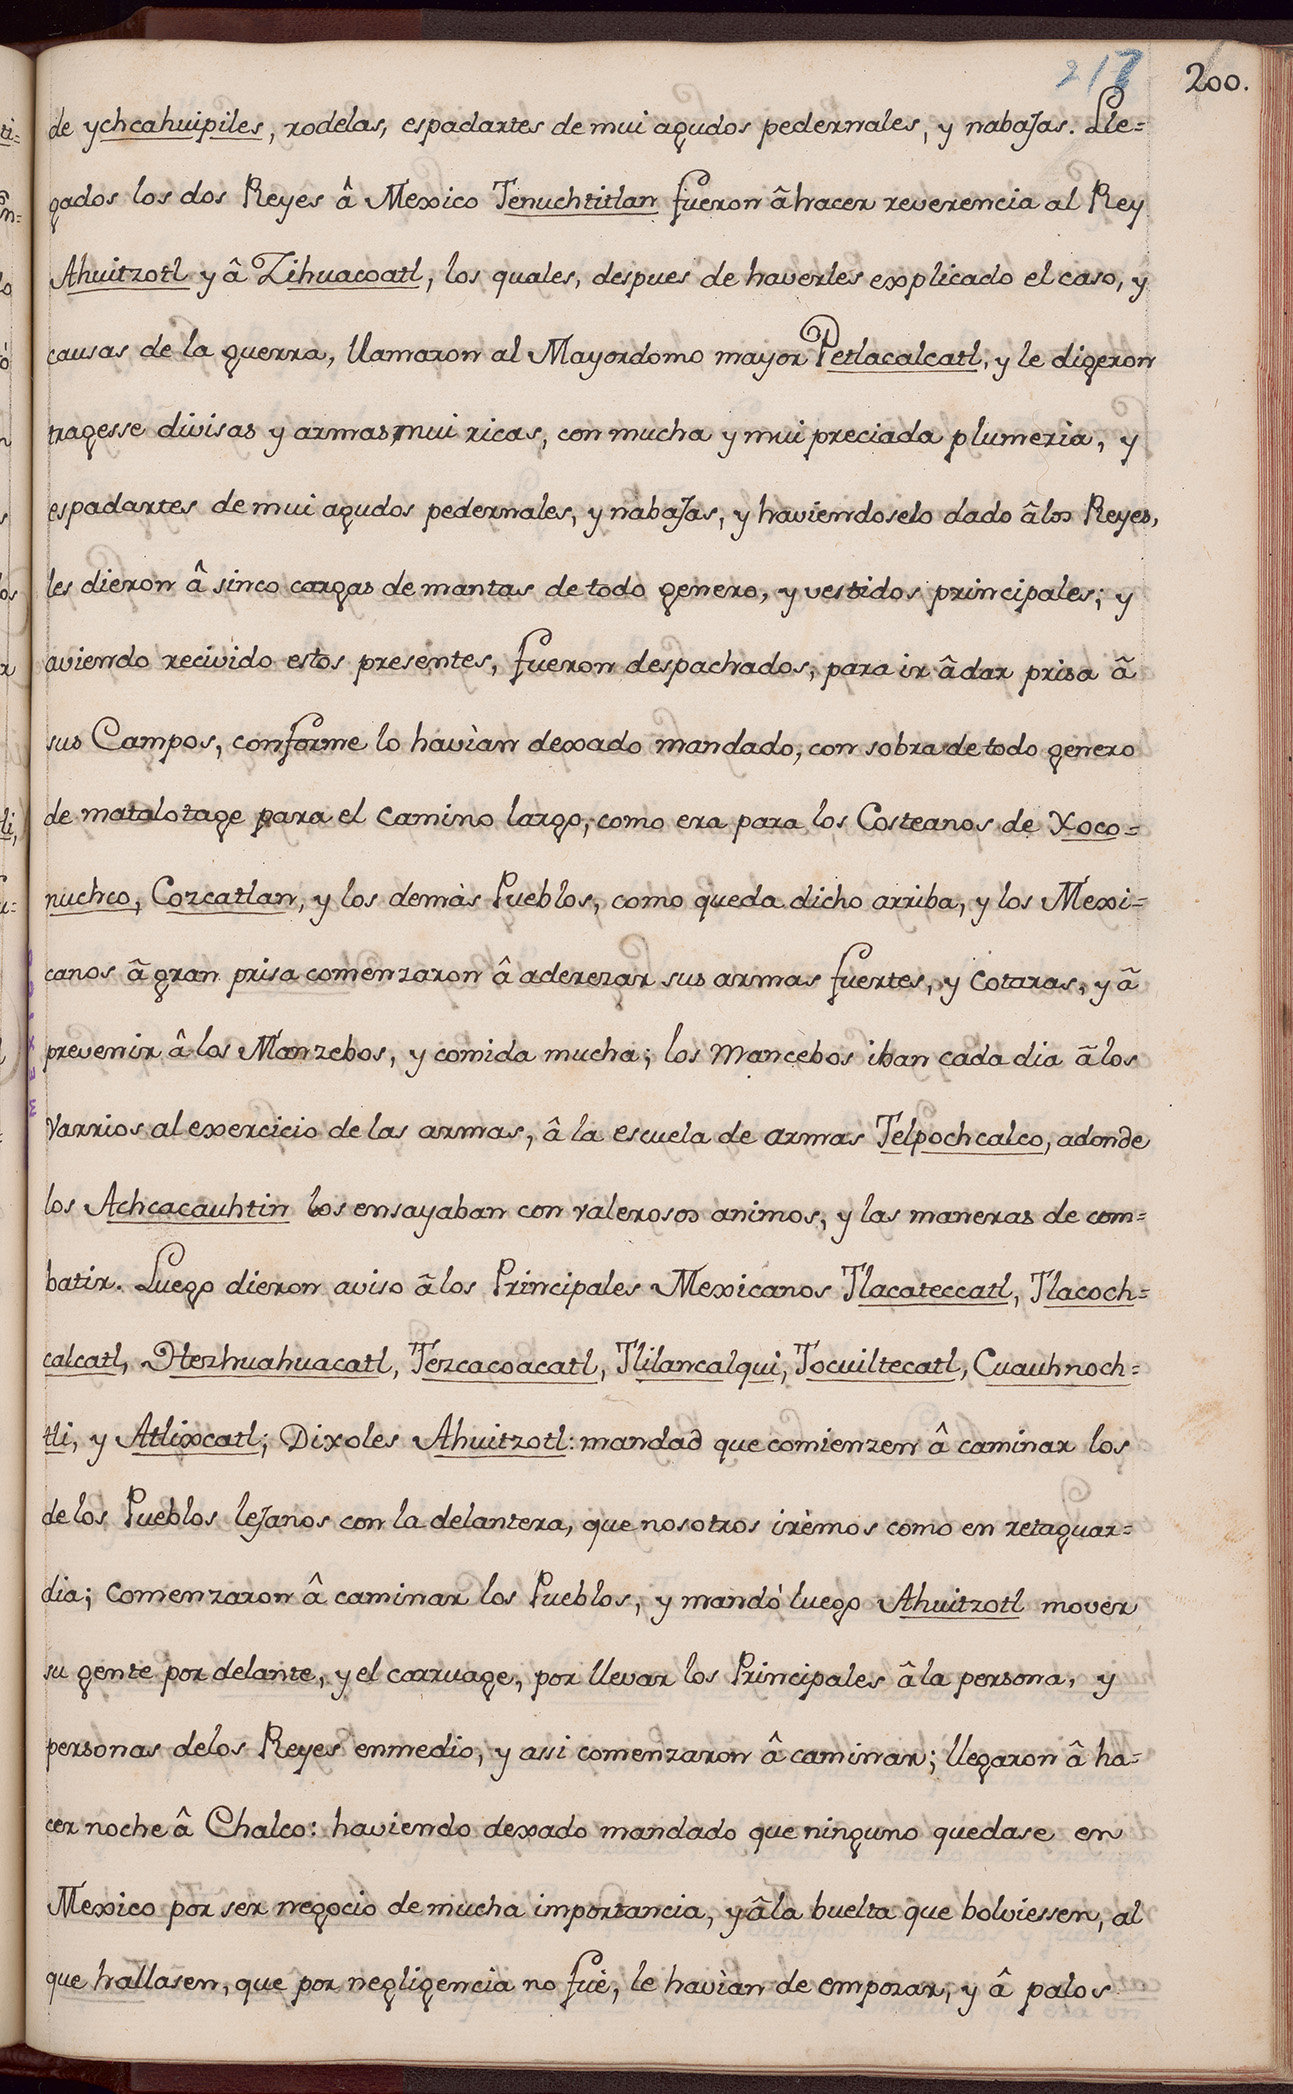 217 200.
de ychcahuipiles, rodelas, espadartes de mui agudos pedernales, y nabaJas. Lle=
gados los dos Reyes â Mexico Tenuchtitlan fueron â hacer reverencia al Rey
Ahuitzotl y â Zihuacoatl, los quales, despues de haverles explicado el caso, y
causas de la guerra, llamaron al Mayordomo mayor Petlacalcatl, y le digeron
tragesse divisas y armas mui ricas, con mucha y mui preciada plumeria, y
espadartes de mui agudos pedernales, y nabaJas, y haviendoselo dado â los Reyes,
les dieron â sinco cargas de mantas de todo genero, y vestidos principales; y
aviendo recivido estos presentes, fueron despachados, para ir â dar prisa â
sus Campos, conforme lo havìan dexado mandado, con sobra de todo genero
de matalotage para el camino largo, como era para los Costeanos de Xoco=
nuchco, Cozcatlan, y los demàs Pueblos, como queda dicho arriba, y los Mexi=
canos â gran prisa comenzaron â aderezar sus armas fuertes, y cotaras, y â
prevenir â los Manzebos, y comida mucha; los mancebos iban cada dia â los
Varrios al exercicio de las armas, â la escuela de armas Telpochcalco, adonde
los Achcacauhtin los ensayaban con valerosos animos, y las maneras de com=
batir. Luego dieron aviso â los Principales Mexicanos Tlacateccatl, Tlacoch=
calcatl, Hezhuahuacatl, Tezcacoacatl, Tlilancalqui, Tocuiltecatl, Cuauhnoch=
tli, y Atlixcatl; Dixoles Ahuitzotl: mandad que comienzen â caminar los
de los Pueblos leJanos con la delantera, que nosotros irèmos como en retaguar=
dia; comenzaron â caminar los Pueblos, y mandò luego Ahuitzotl mover
su gente por delante, y el carruage, por llevar los Principales â la persona, y
personas de los Reyes enmedio, y assi comenzaron â caminar; llegaron â ha=
cer noche â Chalco: haviendo dexado mandado que ninguno quedase en
Mexico por ser negocio de mucha importancia, y â la buelta que bolviessen, al
que hallasen, que por negligencia no fuè, le havìan de emporar, y â palos